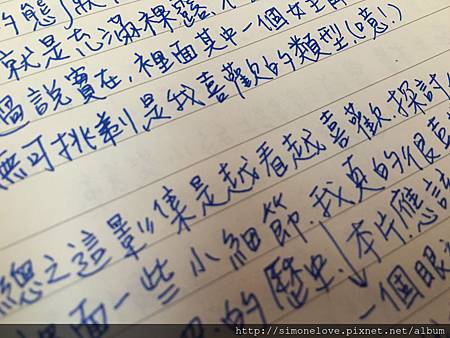 的態
就是充滿裸露
過說實在,裡面其中一個女主
無可挑剔是我喜歡的類型.(噫!)
總之這影集是越看越喜歡探討
裡面一些小細節.我真的很喜
的歷史.本片應該
一個眼
http://simonelove.pixnet.net/album